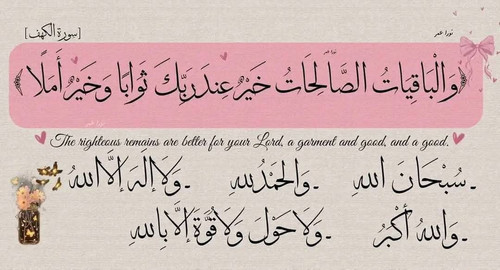 نورا عمر
[سورة الكهف]
﴿وَالْبَاقِيَاتُ الصَّالِحَاتُ خَيْرٌ عِندَ رَبِّكَ ثَوَابًا وَخَيْرٌ أَمَلًا﴾
The righteous remains are better for your Lord, a garment and good, and a good.
.سُبْحَانَ اللهِ .وَالحَمْدُ للهِ .وَلَا إِلَهَ إِلَّا اللهُ
.وَاللهُ أَكْبَرُ .وَلَا حَوْلَ وَلَا قُوَّةَ إِلَّا بِاللهِ